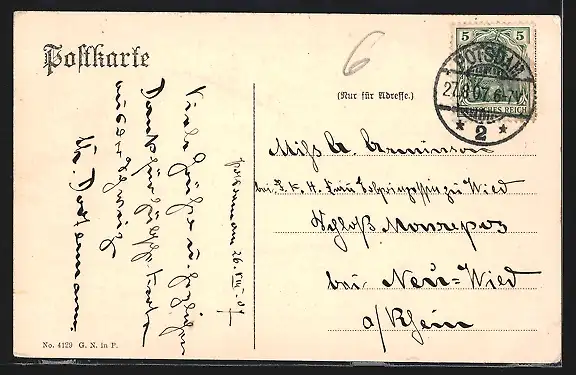 Postkarte
6
(Nur für Adresse.)
5 5
POTSDAM
27.8.07. 6-7N.
DEUTSCHES REICH
* 2 *
Potsdam 26. VIII. 07
Viele Grüße u. herzlichen
Dank für hübsche Karte
aus der Schweiz
Miss A. Arminson
bei I. K. H. Frau Erbprinzessin zu Wied
Schloß Monrepos
bei Neu=Wied
a/Rhein
No. 4129 G. N. in P.